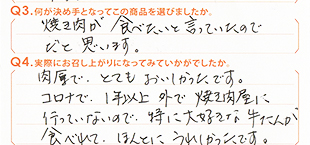 Q3.何が決め手となってこの商品を選びましたか。
焼き肉が食べたいと言っていたので
だと思います。
Q4.実際にお召し上がりになってみていかがでしたか。
肉厚で、とてもおいしかったです。
コロナで、1年以上外で焼き肉屋に
行っていないので、特に大好きな牛たんが
食べれて、ほんとにうれしかったです。